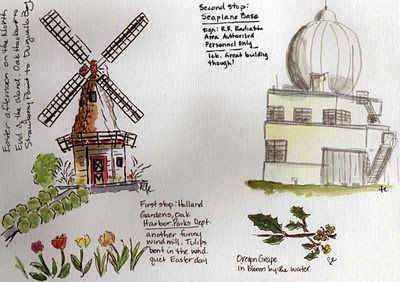 Easter afternoon on the North
End of the island. Oak Harbor to
Strawberry Point to Dugualla Bay
Second stop:
Seaplane Base
sign: R.F. Radiation
Area Authorized
Personnel Only
Great building
though!
First stop: Holland
Gardens, Oak
Harbor Parks Dept.
another funny
windmill. Tulips
bent in the wind.
quiet Easter day
Oregon Grape
in bloom by the water